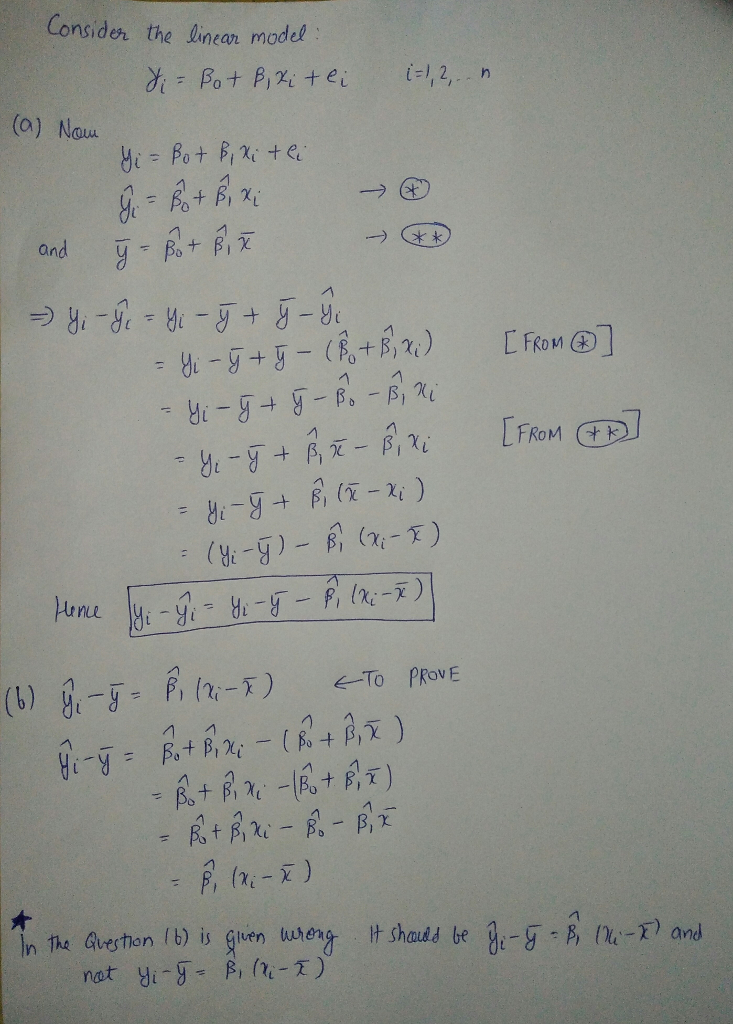 Consider the linear model:
yᵢ = β₀ + β₁xᵢ + eᵢ i=1,2,.. n
(a) Now
yᵢ = β₀ + β₁xᵢ + eᵢ
ŷᵢ = β̂₀ + β̂₁xᵢ → ⊛
and ȳ = β̂₀ + β̂₁x̄ → (**)
⇒ yᵢ - ŷᵢ = yᵢ - ȳ + ȳ - ŷᵢ
= yᵢ - ȳ + ȳ - (β̂₀ + β̂₁xᵢ) [FROM ⊛]
= yᵢ - ȳ + ȳ - β̂₀ - β̂₁xᵢ
= yᵢ - ȳ + β̂₁x̄ - β̂₁xᵢ [FROM (**)]
= yᵢ - ȳ + β̂₁(x̄ - xᵢ)
= (yᵢ - ȳ) - β̂₁(xᵢ - x̄)
Hence yᵢ - ŷᵢ = yᵢ - ȳ - β̂₁(xᵢ - x̄)
(b) ŷᵢ - ȳ = β̂₁(xᵢ - x̄) ← TO PROVE
ŷᵢ - ȳ = β̂₀ + β̂₁xᵢ - (β̂₀ + β̂₁x̄)
= β̂₀ + β̂₁xᵢ - (β̂₀ + β̂₁x̄)
= β̂₀ + β̂₁xᵢ - β̂₀ - β̂₁x̄
= β̂₁(xᵢ - x̄)
★
In the Question (b) is given wrong It should be ŷᵢ - ȳ = β̂₁(xᵢ - x̄) and
not yᵢ - ȳ = β̂₁(xᵢ - x̄)